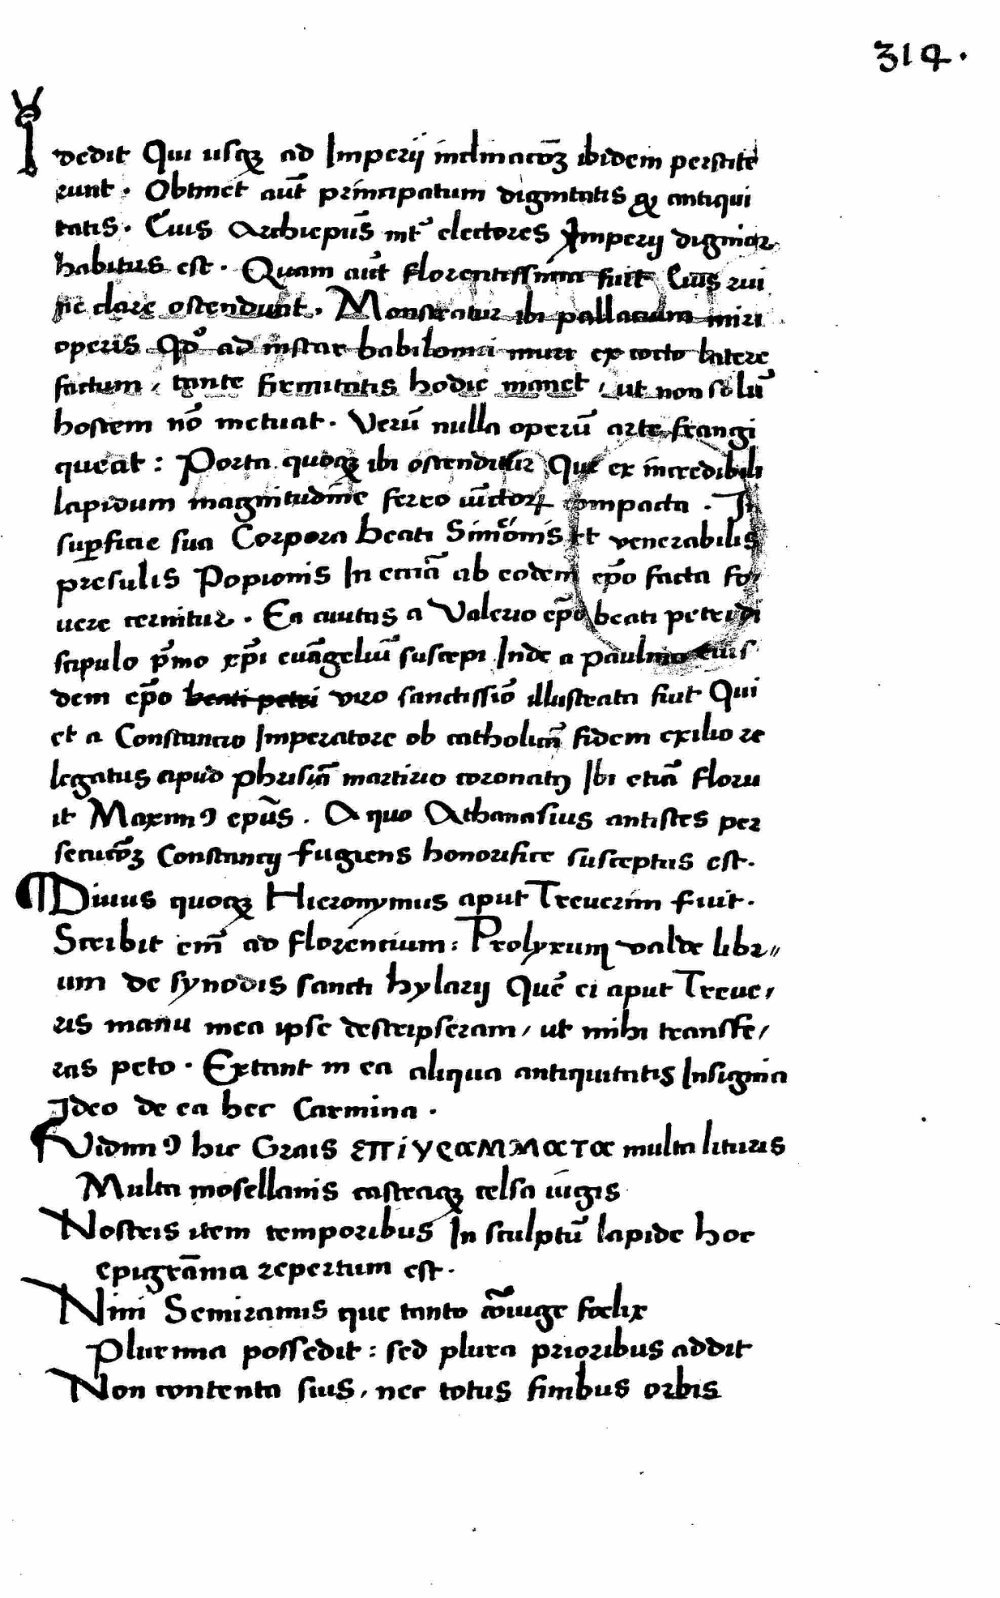 314.
dedit Qui usqꝫ ad Imperij inclinacōꝫ ibidem perstite
runt. Obtinet aut̄ principatum dignitatis qꝫ antiqui
tatis. Cuius Archiepūs int̄ electores Imperij dignior
habitus est. Quam aut̄ florentissima fuit Cuius rui
ne clare ostendunt. Monstratur ibi pallatium miri
operis Qd̊ ad instar babilonici muri ex cocto latere
factum, tante firmitatis hodie manet, ut non solū
hostem nō metuat. Verū nulla operū arte frangi
queat: Porta quoqꝫ ibi ostenditur Que ex incredibili
lapidum magnitudine ferro iūctoꝝ compacta. In
suꝑficie sua Corpora beati Simōnis Et venerabilis
presulis Popionis In ecciā ab eodem ep̄o facta fo
uere cernitur. Ea ciuitas a Valerio ep̄o beati petri di
scipulo p̄mo xp̄i euāgeliū suscepi Inde a paulino eius
dem ep̄o beati petri viro sanctissīo illustrata fiut Qui
et a Constancio Imperatore ob catholicā fidem exilio re
legatus apud phrisiā martirio coronatꝰ Ibi etiā floru
it Maximꝰ epūs. A quo Athanasius antistes per
secucōꝫ Constancij fugiens honorifice susceptus est.
¶Diuus quoqꝫ Hieronymus aput Treuerim fuit.
Scribit em̄ ad florencium: Prolyxum valde libr〃
um de synodis sancti hylarij Quē ei aput Treue,
ris manu mea ipse descripseram, ut mihi transfe,
ras peto. Extant in ea aliqua antiquitatis Insignia
Ideo de ea hec Carmina.
Vidimꝰ hic Grais επιγραμματα multa lituris
Multa mosellanis castraqꝫ celsa iūgis
Nostris item temporibus In sculptū lapide hoc
epigrāma repertum est.
Nini Semiramis que tanto cōiuge foelix
Plurima possedit: sed plura prioribus addit
Non contenta suis, nec totus finibus orbis